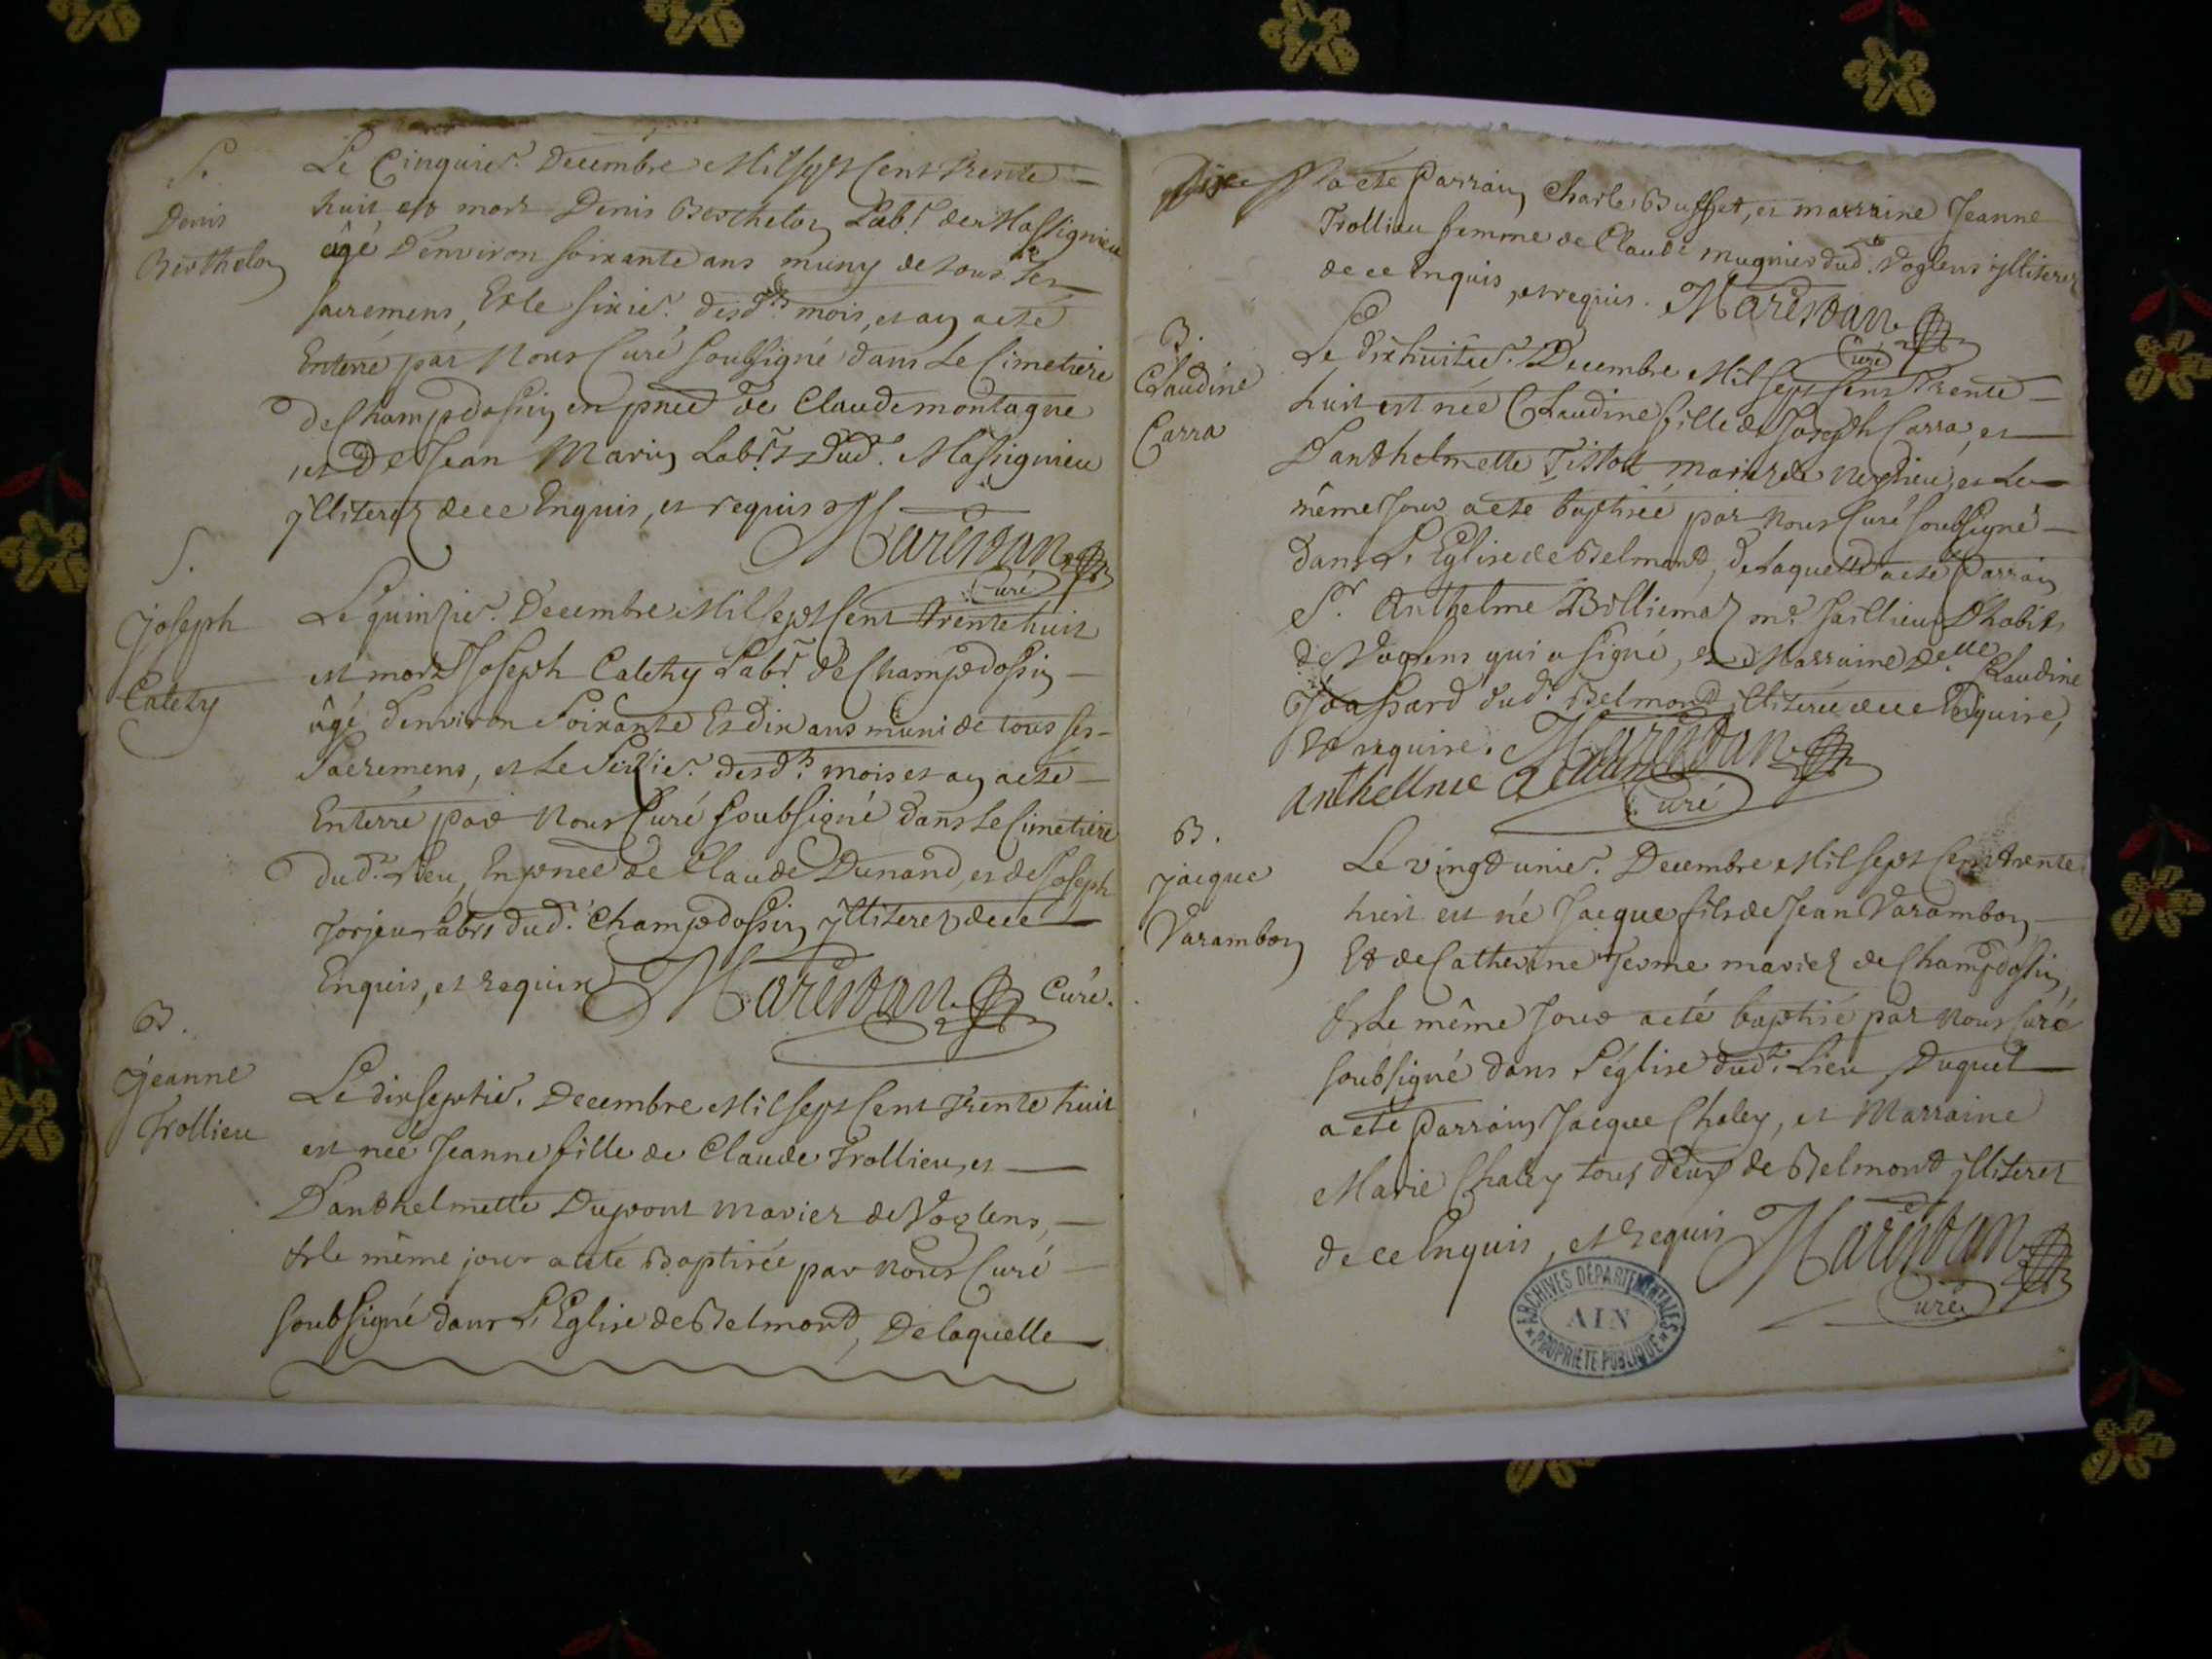 S.
Denis
Berthelon
Le Cinquie. Decembre Mil sept Cent Trente
huit est mort Denis Berthelon Lab.r de Massignieu
âgé d'environ soixante ans muny de tous ses
sacremens, Et le sixie. desd.ts mois, et an a eté
Enterré par Nous Curé soubsigné dans Le Cimetiere
de Champdossin en pnce de Claude montagne
et De Jean Marin Lab.rs dud. Massignieu
jlliterez de ce Enquis, et requis
Marestan
Curé
S.
Joseph
Catehy
Le quinzie. Decembre Mil sept Cent trente huit
est mort Joseph Catehy Lab.r de Champdossin
âgé d'environ Soixante Et dix ans muni de tous ses
Sacremens, et Le Sezie. desd.ts mois et an a eté
Enterré par Nous Curé soubsigné dans Le Cimetiere
dud.t Lieu, En pnce de Claude Dunand, et de Joseph
labrs dud. Champdossin jlliterez de ce
Enquis, et requis Marestan Curé.
B.
jeanne
Trollieu
Le dix septie. Decembre Mil sept Cent Trente huit
est neé Jeanne fille de Claude Trollieu, et
D'anthelmette Dupont mariez de Voglens,
Et le même jour a eté Baptisée par Nous Curé
soubsigné dans L'Eglise de Belmond, De laquelle
a eté Parrain Charle Buffet, et marraine Jeanne
Trollieu femme de Claude mugnier dud. Voglens jlliterez
de ce Enquis, et requis. Marestan
Curé
B.
Claudine
Carra
Le dix huitie. Decembre Mil sept Cent Trente
huit est neé Claudine fille de Joseph Carra, et
D'anthelmette Tissot mariez de et Le
même Jour a eté baptisée par Nous Curé soubsigné
dans L'Eglise de Belmond, de laquelle a eté Parrain
S.r Anthelme Billiemaz m.e Taillieur habit.
de Voglens qui a signé, et Marraine D.elle Claudine
dud.t Belmond jlliterée de ce Enquire,
Et require. Marestan
anthellme
Curé
B.
jacque
Varambon
Le vingt unie. Decembre Mil sept Cent trente
huit est né Jacque fils de Jean Varambon
Et de Catherine mariez de Champdossin,
Et Le même Jour a eté baptisé par Nous Curé
soubsigné dans L'église dud.t Lieu, Duquel
a eté Parrain Jacque Chaley, et Marraine
Marie Chaley tous deux de Belmond jlliterez
de ce Enquis, et requis Marestan
Curé
ARCHIVES DÉPARTEMENTALES
AIN
PROPRIÉTÉ PUBLIQUE